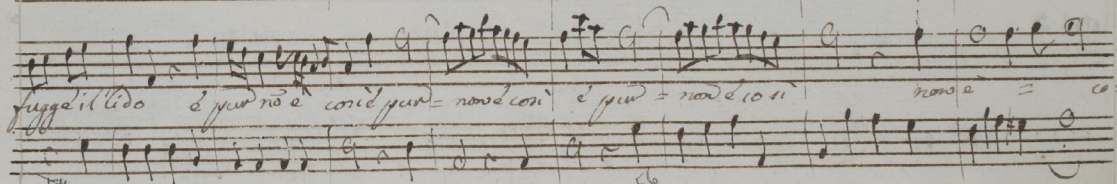 fugge il lido è pur nõ è così è pur = non è così è pur = non è così non è = co
56